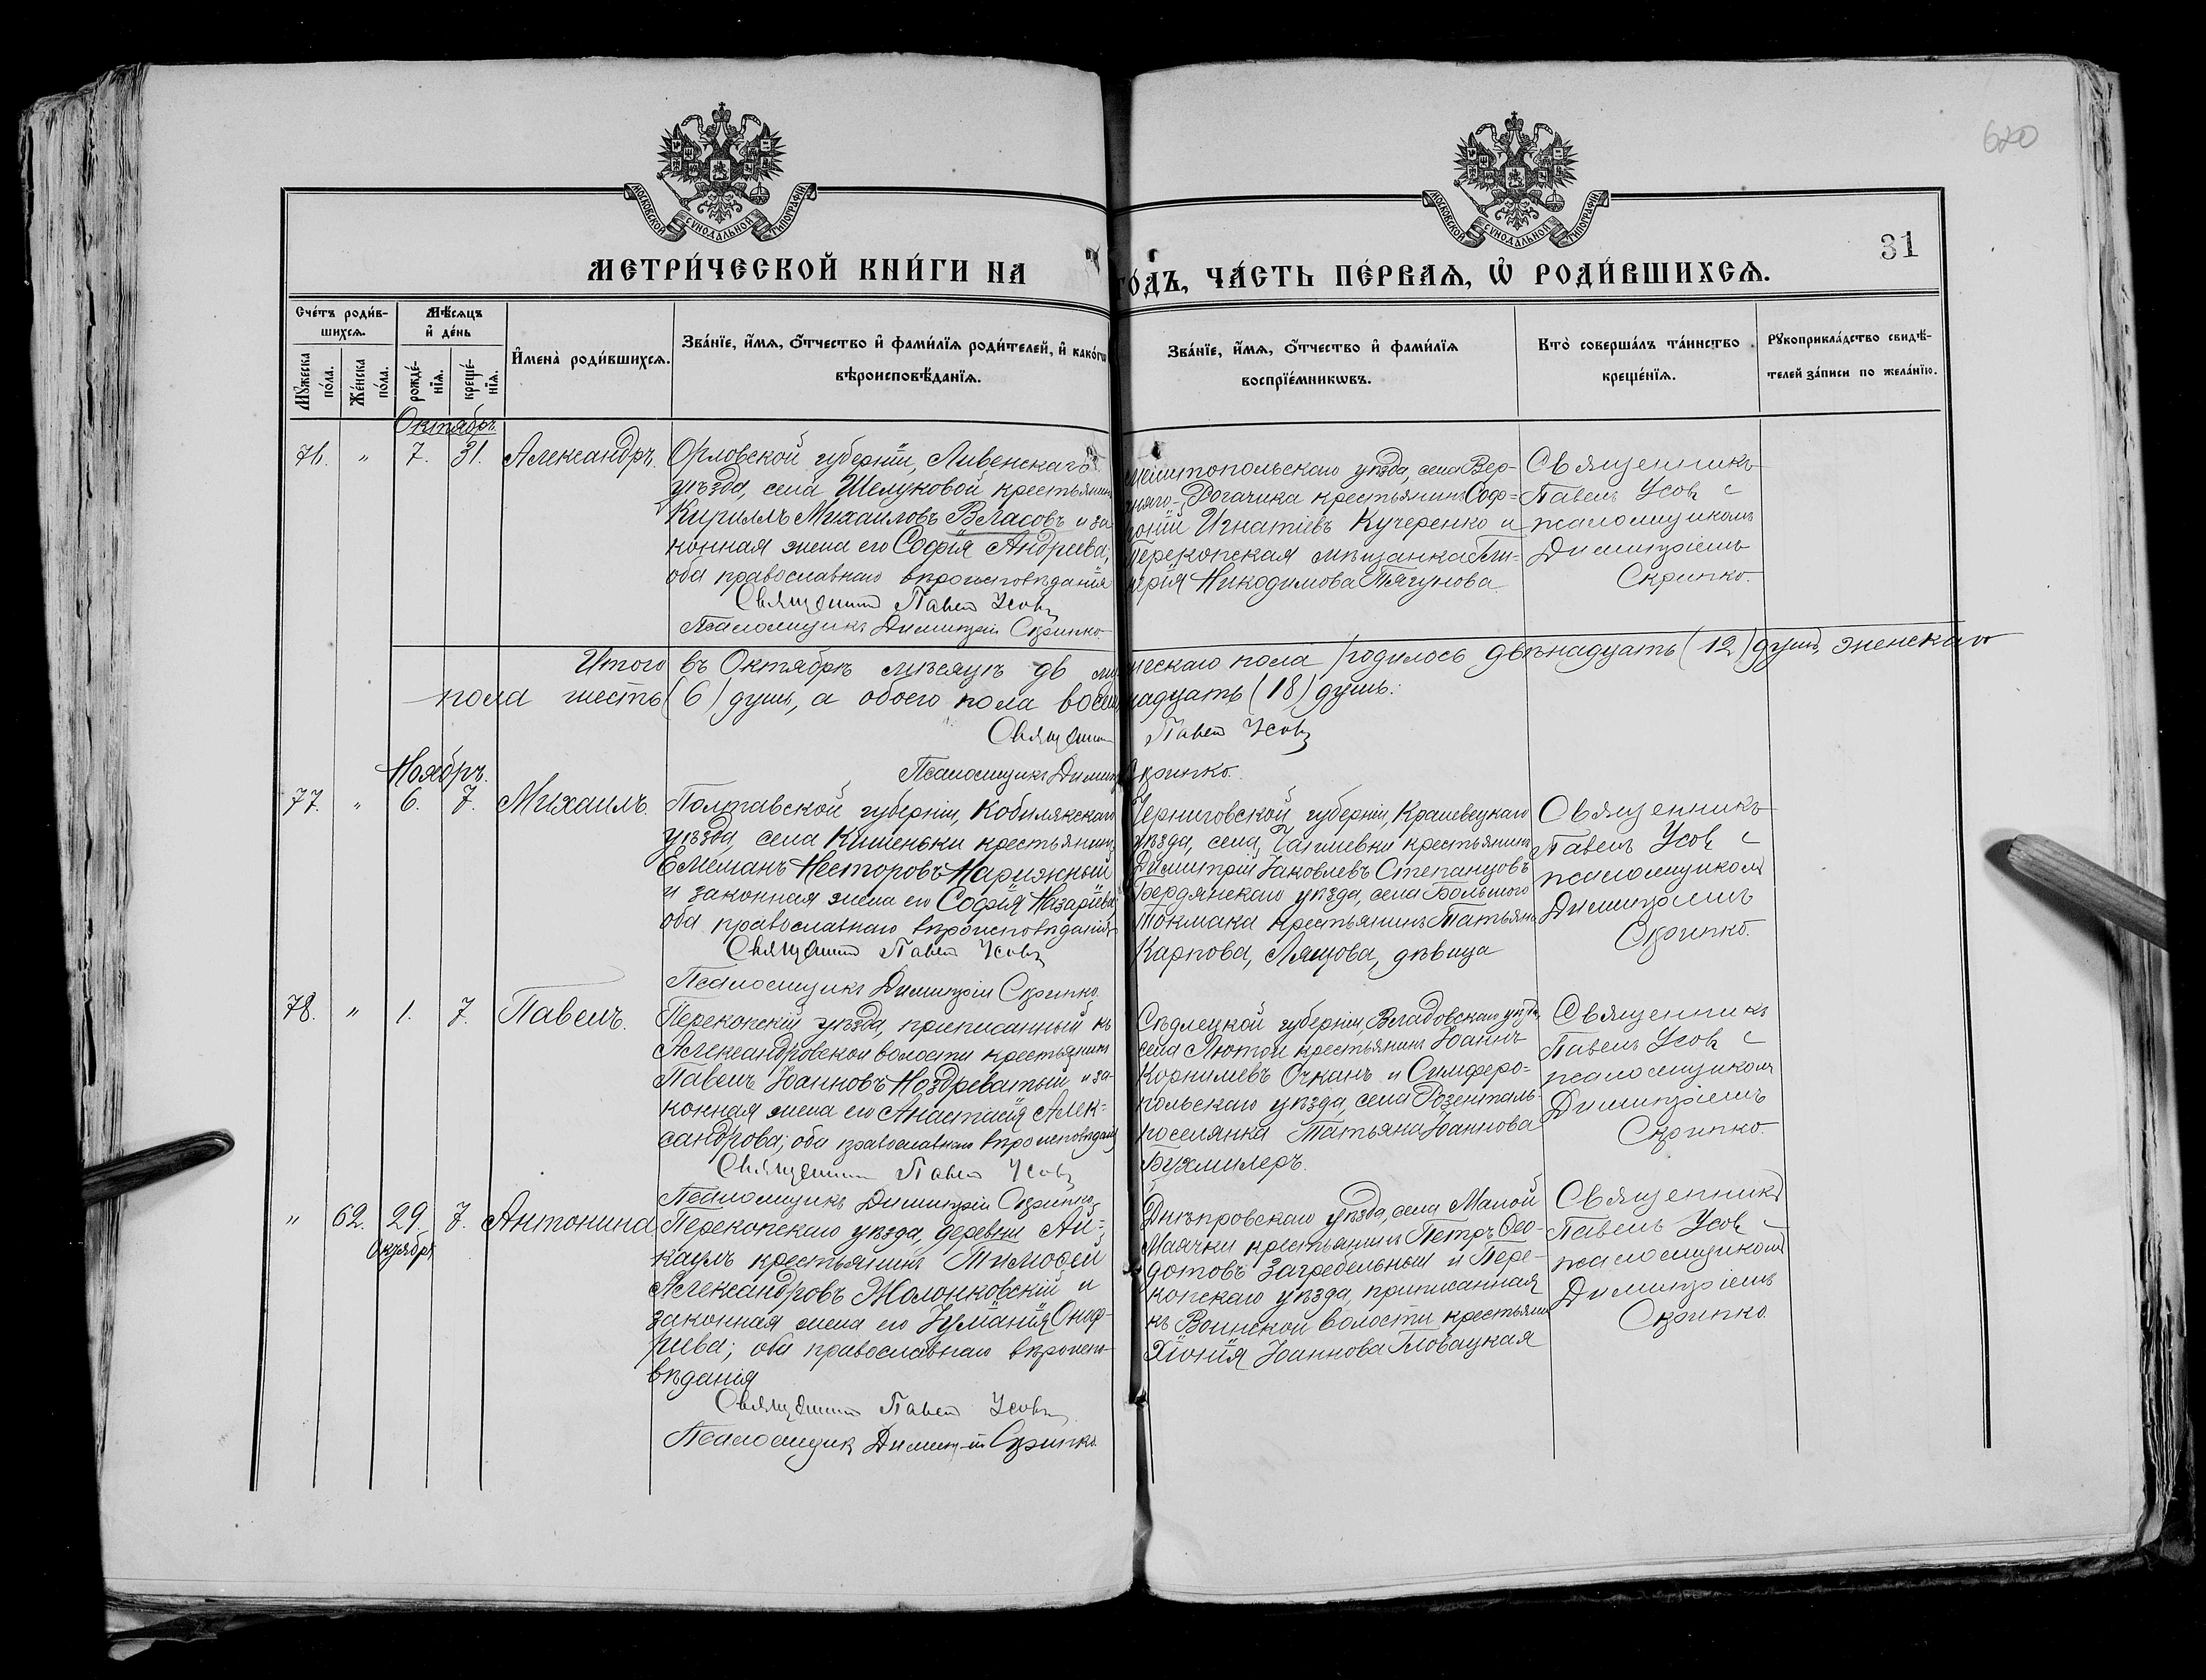 620
МОСКОВСКОЙ СѴНОДАЛЬНОЙ ТИПОГРАФІИ
МОСКОВСКОЙ СѴНОДАЛЬНОЙ ТИПОГРАФІИ
31
МЕТРИ́ЧЕСКОЙ КНИ́ГИ НА
ГО́ДЪ, ЧА́СТЬ ПЕ́РВАѦ, Ѡ҆ РОДИ́ВШИХСѦ.
Сче́тъ роди́в-
шихсѧ.
Мꙋ́жеска по́ла.
Же́нска по́ла.
Мѣ́сѧцъ
и҆ де́нь
рожде́-
нїѧ.
креще́-
нїѧ.
И҆мена̀ роди́вшихсѧ.
Зва́нїе, и҆́мѧ, о҆́тчество и҆ фами́лїѧ роди́телей, и҆ како́гѡ
вѣроисповѣ́данїѧ.
Зва́нїе, и҆́мѧ, о҆́тчество и҆ фами́лїѧ
воспрїе́мникѡвъ.
Кто̀ соверша́лъ та́инство
креще́нїѧ.
Рꙋкоприкла́дство свидѣ́-
телей за́писи по жела́нїю.
Октябрь.
76. " 7. 31. Александръ.
Орловской губерніи, Ливенскаго
уѣзда, села Шелуковой крестьянинъ
Кириллъ Михаиловъ Власовъ и за-
конная жена его Софія Андреева;
оба православнаго вѣроисповѣданія
Священникъ Павелъ Усовъ
Псаломщикъ Димитрій Скрипко
Мелитопольскаго уѣзда, села Вер-
няго-Рогачика крестьянинъ Соф-
роній Игнатіевъ Кучеренко и
Перекопская мѣщанка Гли-
керія Никодимова Тягунова.
Священникъ
Павелъ Усовъ с
псаломщикомъ
Димитріемъ
Скрипко.
Итого въ Октябрѣ мѣсяцѣ мужескаго пола родилось двѣнадцать (12) душъ, женскаго
пола шесть (6) душъ, а обоего пола восемнадцать (18) душъ.
Священникъ Павелъ Усовъ
Псаломщикъ Димитрій Скрипко.
Ноябрь.
77. " 6. 7. Михаилъ.
Полтавской губерніи, Кобилякскаго
уѣзда, села Кишеньки крестьянинъ
Емеліанъ Несторовъ Нарижный
и законная жена его Софія Назаріева
оба православнаго вѣроисповѣданія
Священникъ Павелъ Усовъ
Псаломщикъ Димитрій Скрипко.
Черниговской губерніи, Кралевецкаго
уѣзда, села крестьянинъ
Димитрій Іаковлевъ Степанцовъ
Бердянскаго уѣзда, села Большого
Токмака крестьянинъ Татьяна
Карпова, Ляшова, дѣвица
Священникъ
Павелъ Усовъ с
псаломщикомъ
Димитріемъ
Скрипко.
78. " 1. 7. Павелъ.
Перекопскій уѣзда, приписанный къ
Александровской волости крестьянинъ
Павелъ Іоанновъ Ноздреватый и за-
конная жена его Анастасія Алек-
сандрова; оба православнаго вѣроисповѣданія
Священникъ Павелъ Усовъ
Псаломщикъ Димитрій Скрипко
Сѣдлецкой губерніи, Владовскаго уѣзда,
села Лютой крестьянинъ Іоаннъ
Корниліевъ Очканъ и Симферо-
польскаго уѣзда, села Розенталь
поселянка Татьяна Іоаннова
Бухмиллеръ.
Священникъ
Павелъ Усовъ с
псаломщикомъ
Димитріемъ
Скрипко.
" 62. 29. 7. Антонина
Октября
Перекопскаго уѣзда, деревни Ай-
каулъ крестьянинъ Тимоѳей
Александровъ Жолонковскій и
законная жена его Іуліанія Ониф-
ріева; оба православнаго вѣроиспо-
вѣданія
Священникъ Павелъ Усовъ
Псаломщикъ Димитрій Скрипко.
Днѣпровскаго уѣзда, села Малой
Маячки крестьянинъ Петръ Ѳео-
дотовъ Загребельный и Пере-
копскаго уѣзда, приписанная
къ Воинской волости крестьянка
Хіонія Іоаннова Гловацкая
Священникъ
Павелъ Усовъ
псаломщикомъ
Димитріемъ
Скрипко.